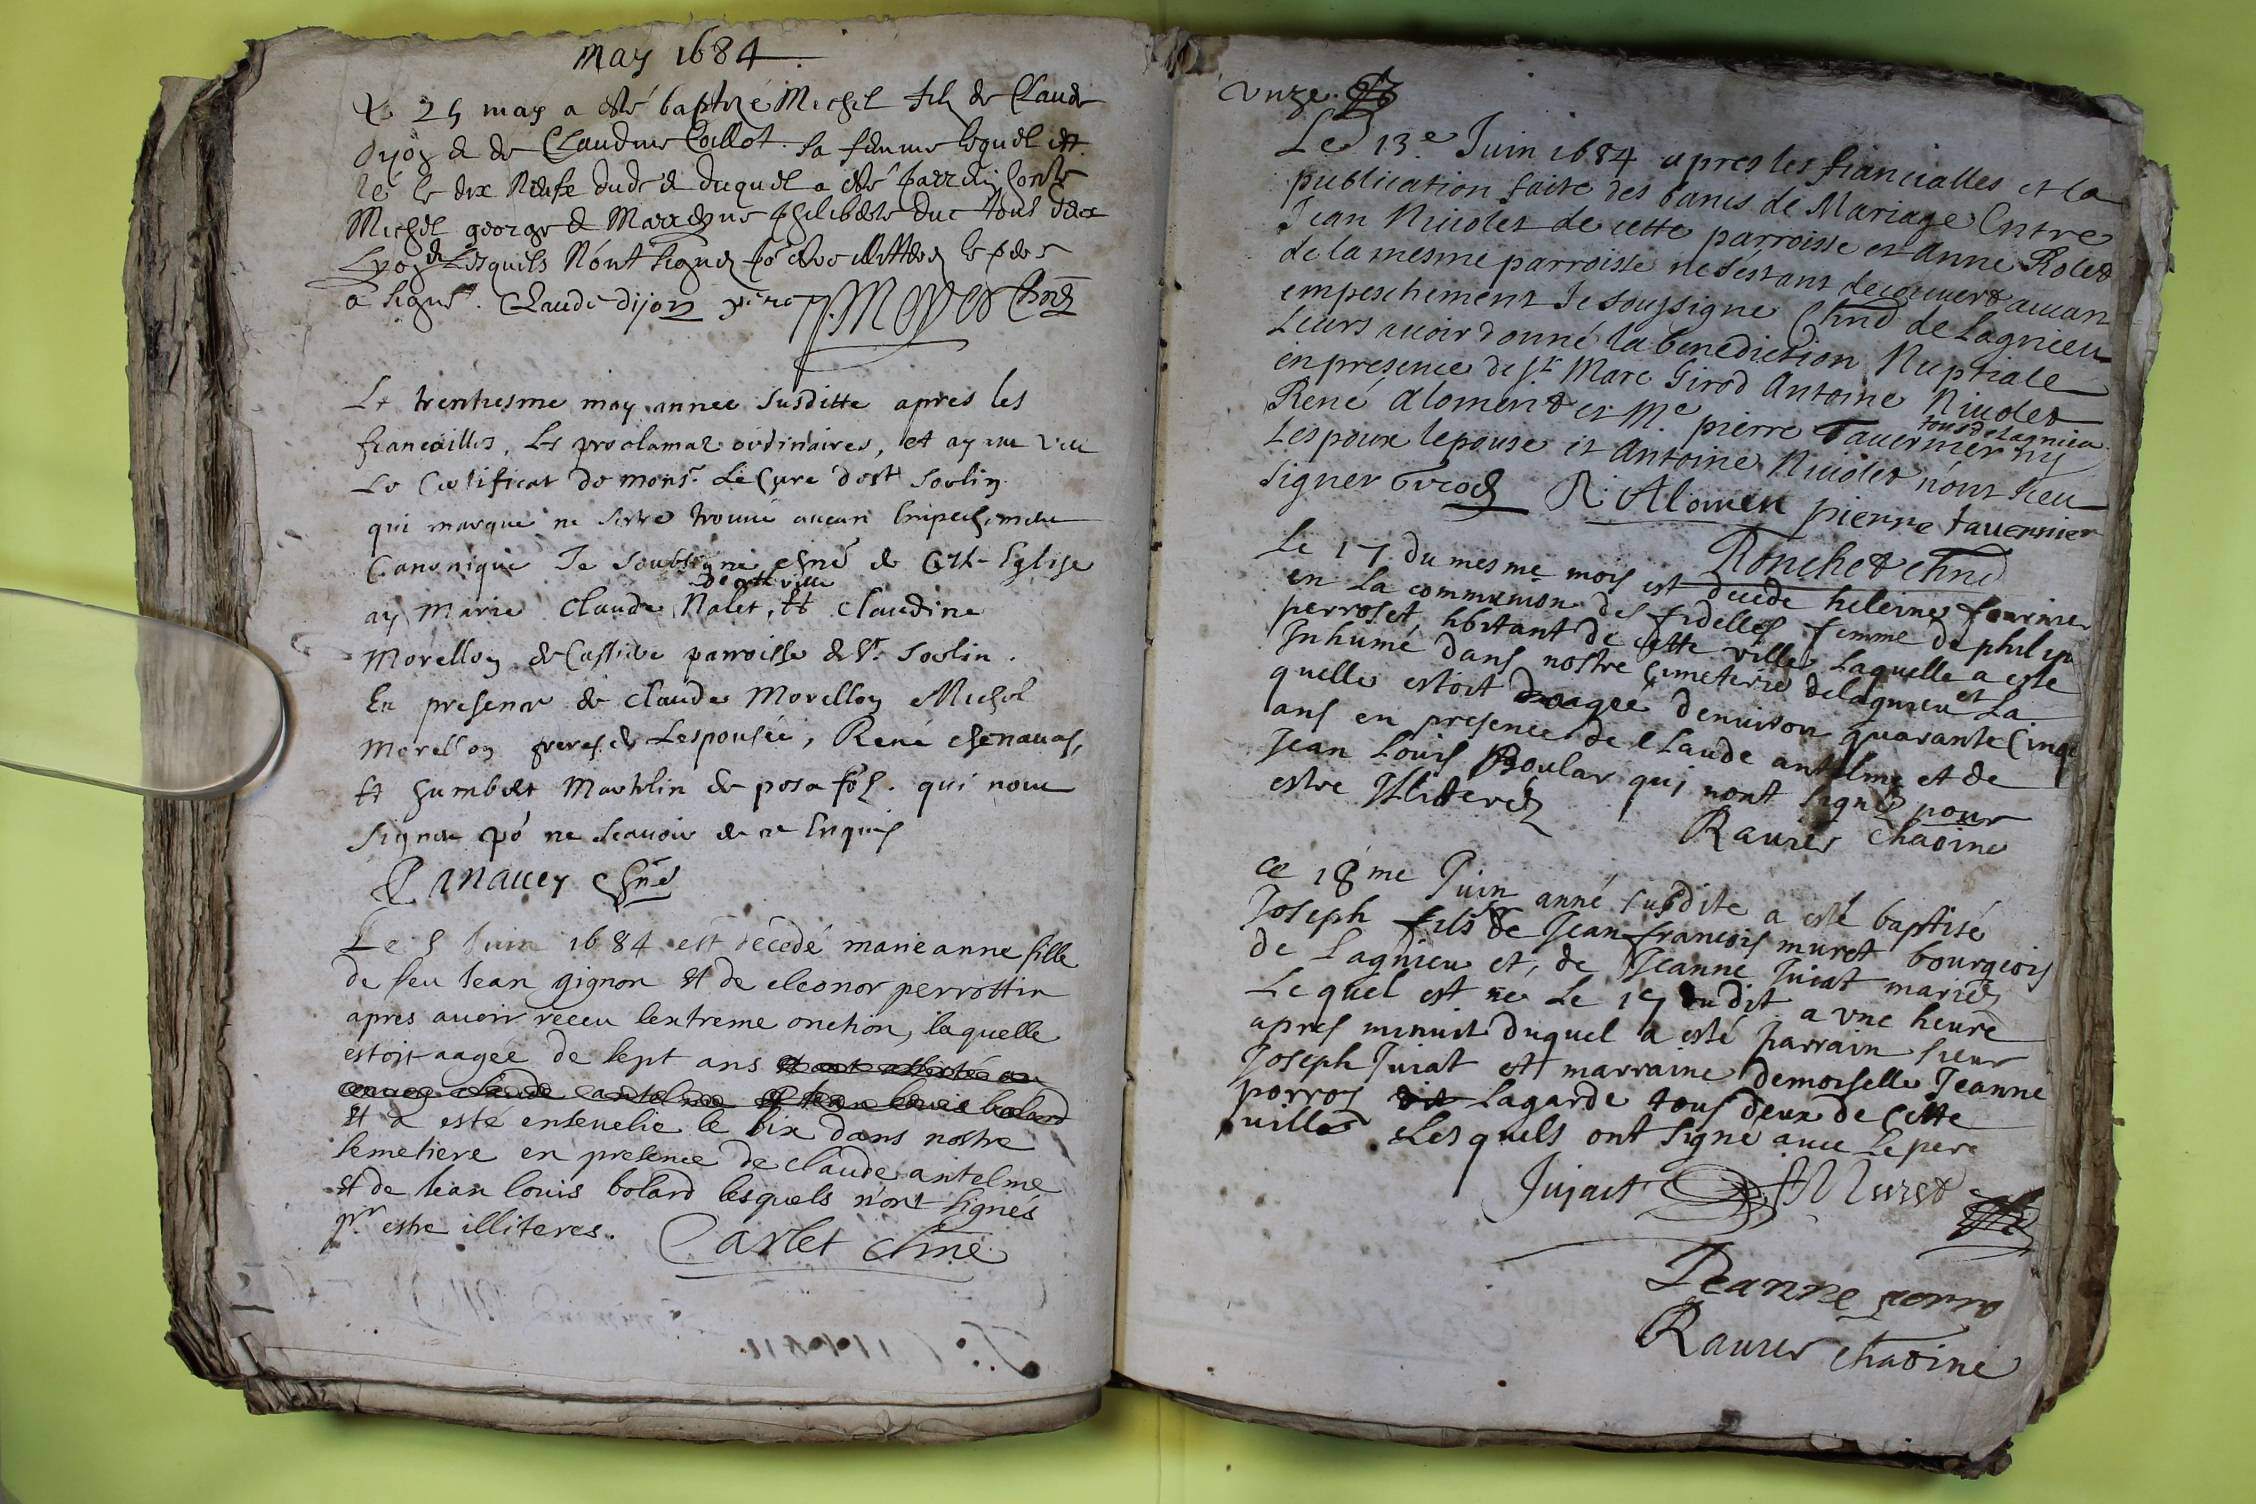 may 1684
Le 25 may a esté baptizé Michel fils de Claude
dijon et de Claudine Collot sa femme lequel est
né le dix neufe dudit et duquel a esté parrain honste
Michel george et Marreyne philiberte duc tous deux
Lyon et Lesquels n'ont signez po estre illitterez le pere
a signé. Claude dijon pere Moyet Chne
Le trentiesme may annee susditte apres les
fiancailles, Les proclamaõ ordinaires, et ayant veu
Le Certificat de monsr. Le Cure de st Sorlin
qui marque ne s'estre trouué aucun Empeschement
Canonique Je soubsigne chne de Cette Eglise
de cette ville
ay marie Claude Nalet, et Claudine
Morellon de parroisse de st. Sorlin.
En presence de Claude Morellon Michel
Morellon freres de Lespousée, René chenauas,
et humbert Mathelin de posafol. qui n'ont
signer po ne scauoir de ce Enquis
chne
Le 5 Juin 1684 est décedé marie anne fille
de feu Jean gignon et de eleonor perrottin
apres auoir receu lextreme onction, laquelle
estoit aagée de sept ans
claude antelme et Jean louis bolard
et a esté enseuelie le six dans nostre
semetiere en presence de claude antelme
et de Jean louis bolard lesquels n'ont signés
pr estre illiteres. Carlet chne
unze
Le 13e Juin 1684 apres les fiancialles et la
publication faite des bancs de Mariage Entre
Jean Niuolet de cette parroisse et Anne Rolet
de la mesme parroisse ne s'estant decouuert aucun
empeschement Je soussigne Chne de Lagnieu
Leurs auoir donné la benediction Nuptiale
en presence de sr Marc Girod Antoine Niuolet
tous de Lagnieu
René Aloment et Me pierre Tauernier ny
Lespoux lepouse et Antoine Niuolet n'ont sceu
signer Girod R. Alomen pierre tauernier
Ronchet chne
Le 17 du mesme mois est decede heleine fournier
en La communion des fidelles femme de philip
perroset, hbitant de Cette ville Laquelle a este
Inhumé dans nostre Cimeterie de lagnieu et La
quelle estoit aagee denuiron quarante Cinqs
ans en presence de Claude antelme et de
Jean Louis Boular qui nont signéz pour
estre Illiterez
Rauier Chãoine
ce 18me Juin anné susdite a esté baptisé
Joseph fils de Sr Jean francois muret bourgeois
de Lagnieu et, de Jeanne Juiat mariez
Le quel est né Le 17 du dit a vne heure
apres minuit duquel a esté parrain sieur
Joseph Juiat et marraine demoiselle Jeanne
porroz dit Lagarde tous deux de Cette
ville Les quels ont signé auec Le pere
Jujact Muret
Jeanne porro
Rauier Chãoine